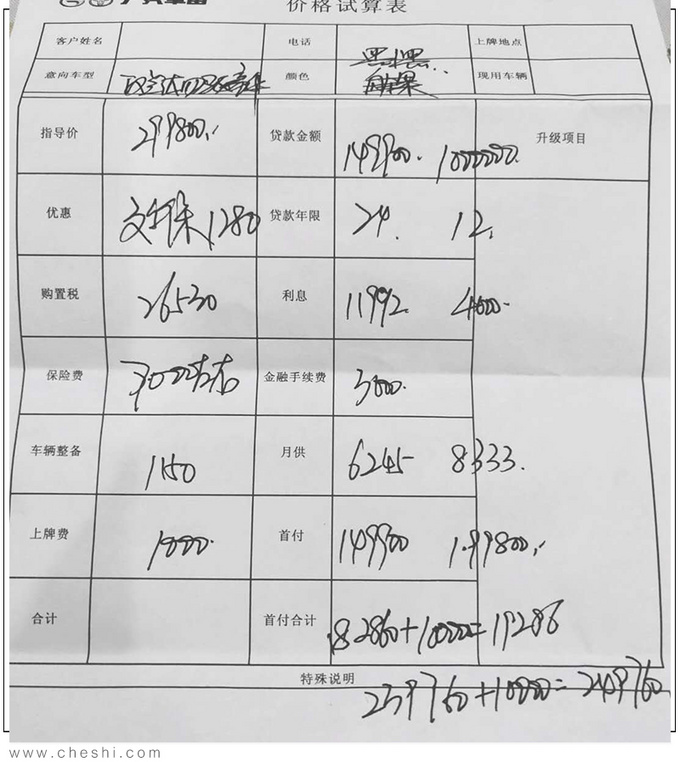 价格试算表
客户姓名 电话 上牌地点
意向车型 颜色 黑 黑 现用车辆
指导价 299800 贷款金额 149900 1000000 升级项目
优惠 1280 贷款年限 24 12
购置税 26530 利息 11992 4000
保险费 左右 金融手续费 3000
车辆整备 1150 月供 6245 8333
上牌费 1000 首付 149900 199800
合计 首付合计 182860+10000=19286
特殊说明
239760+10000=249760
www.cheshi.com